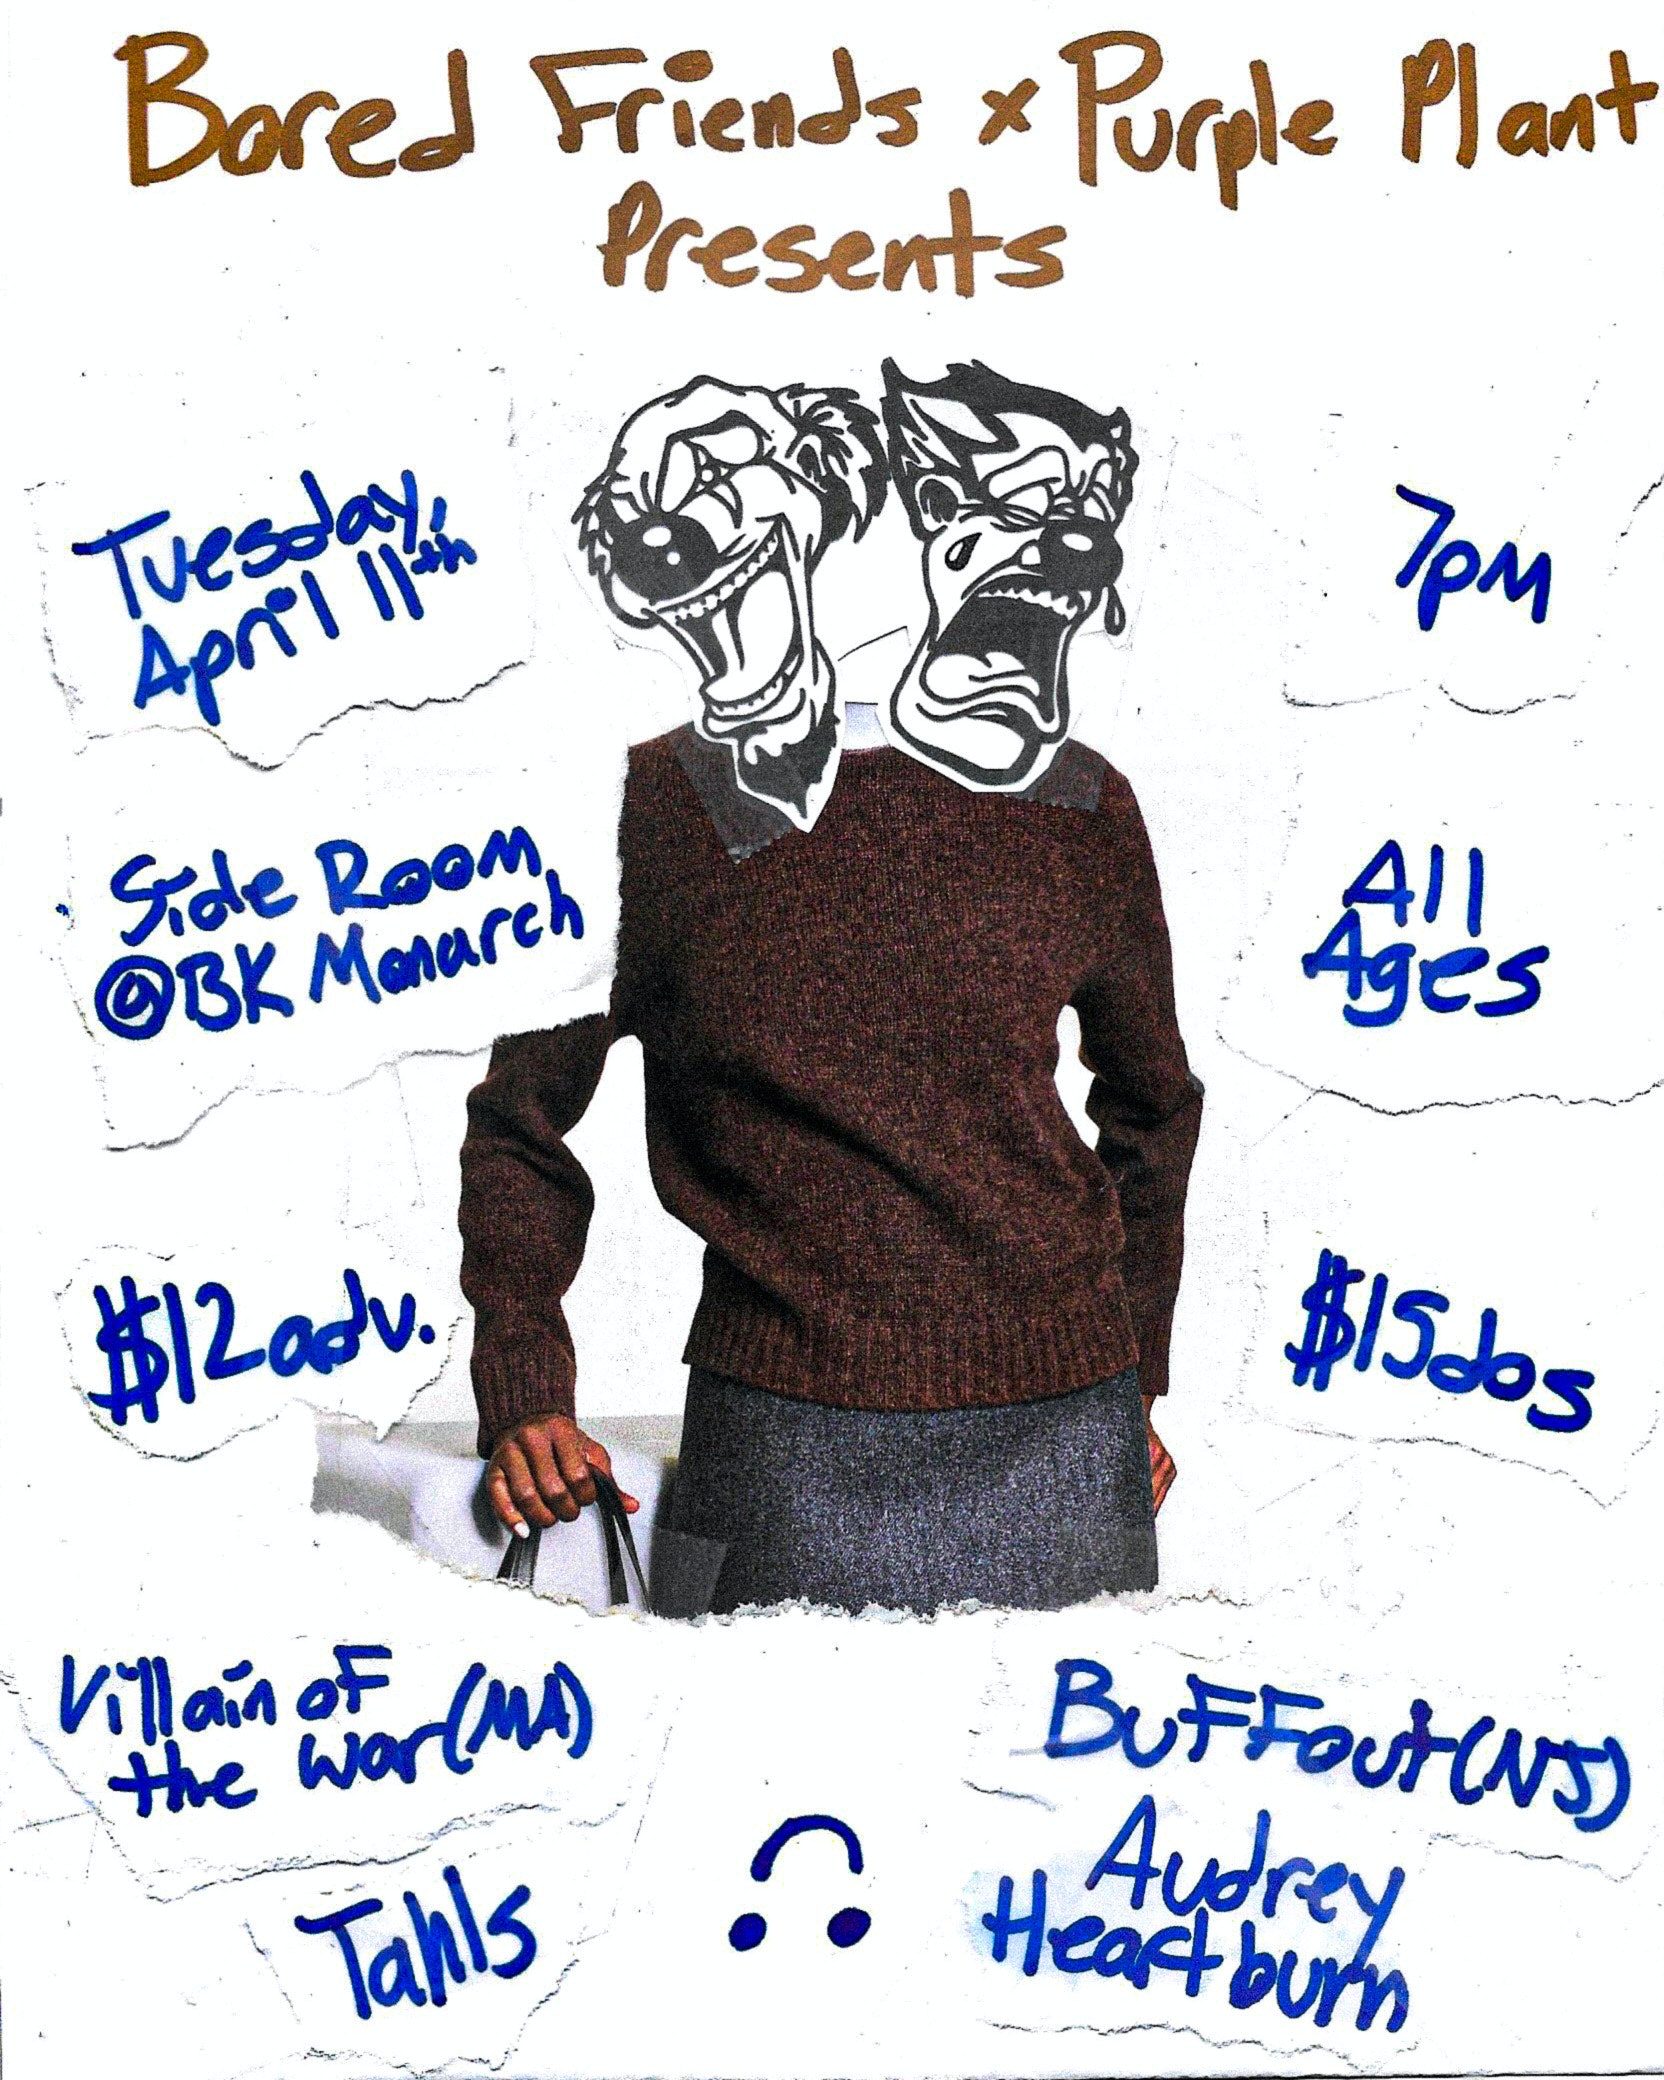 Bored Friends x Purple Plant
Presents
Tuesday,
April 11th
7pm
Side Room
@BK Monarch
All
Ages
$12 adv.
$15 dos
Villain of
the War (MA)
Buffout (NJ)
Tahls
Audrey
Heartburn